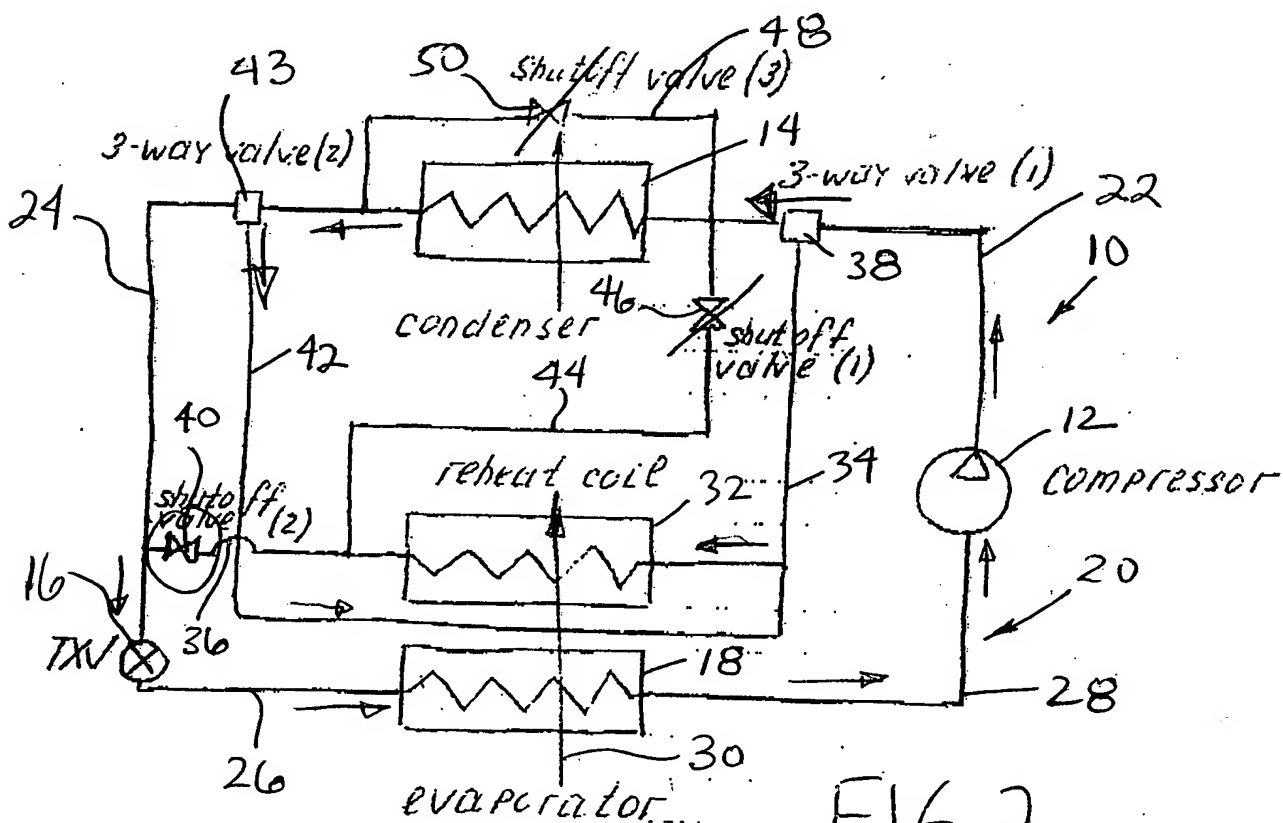 48
43
50
shutoff valve (3)
3-way valve (2)
14
3-way valve (1)
22
24
38
10
46
condenser
shutoff
valve (1)
42
44
40
12
reheat coil
32
34
compressor
shutoff
valve (2)
16
20
36
TXV
18
28
26
30
evaporator
FIG. 2